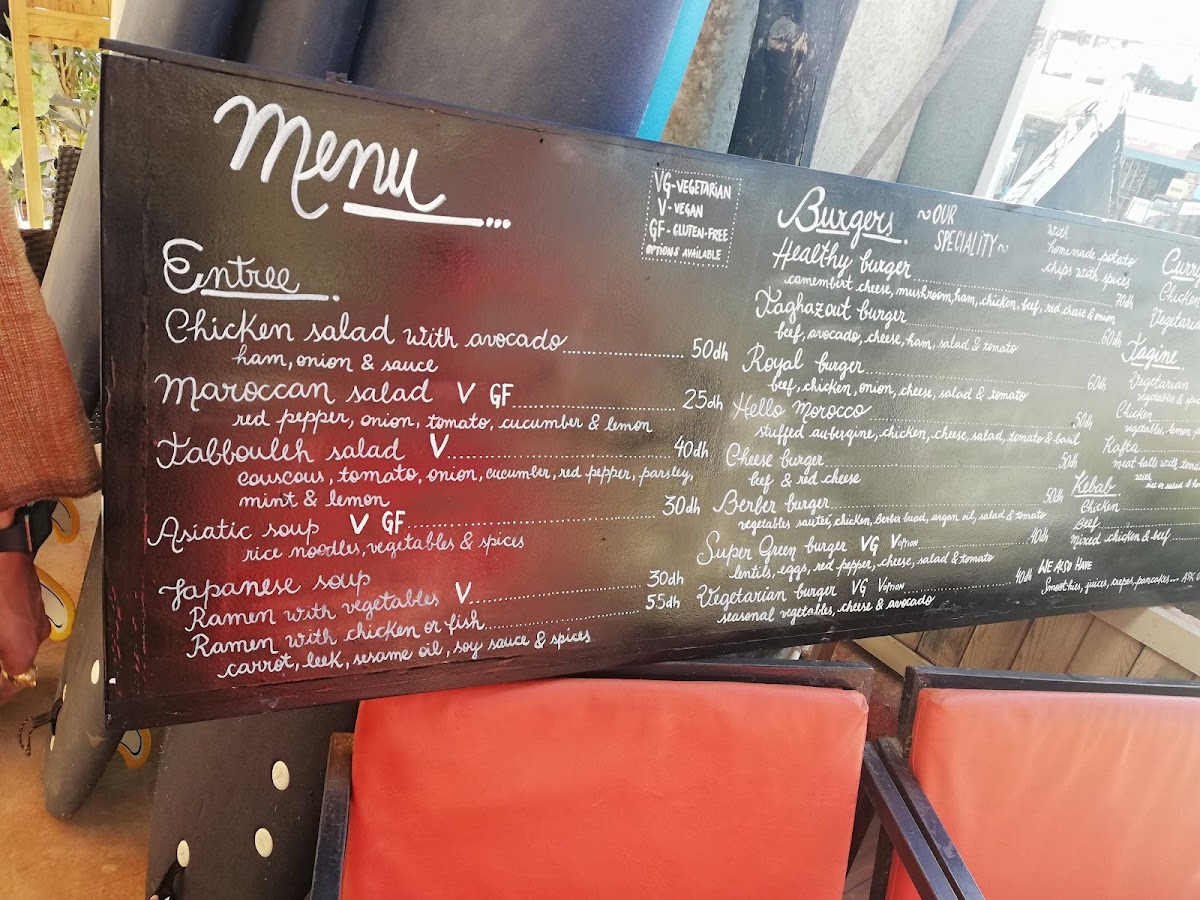 Menu...
VG-VEGETARIAN
V-VEGAN
GF-GLUTEN-FREE
OPTIONS AVAILABLE
Entree.
Chicken salad with avocado 50dh
ham, onion & sauce
Maroccan salad V GF 25dh
red pepper, onion, tomato, cucumber & lemon
Tabbouleh salad V 40dh
couscous, tomato, onion, cucumber, red pepper, parsley,
mint & lemon
Asiatic soup V GF 30dh
rice noodles, vegetables & spices
Japanese soup
Ramen with vegetables V 30dh
Ramen with chicken or fish 55dh
carrot, leek, sesame oil, soy sauce & spices
Burgers. ~OUR SPECIALITY~
with
homemade potato
chips with spices
Healthy burger 70dh
camembert cheese, mushroom, ham, chicken, beef, red cheese & onion
Taghazout burger 60dh
beef, avocado, cheese, ham, salad & tomato
Royal burger 60dh
beef, chicken, onion, cheese, salad & tomato
Hello Morocco 50dh
stuffed aubergine, chicken, cheese, salad, tomato & basil
Cheese burger 50dh
beef & red cheese
Berber burger 50dh
vegetables sautes, chicken, Berber bread, argan oil, salad & tomato
Super Green burger VG V OPTION 40dh
lentils, eggs, red pepper, cheese, salad & tomato
Vegetarian burger VG V OPTION 40dh
seasonal vegetables, cheese & avocado
Tagine.
Vegetarian
Chicken
Kafta
Kebab.
Chicken
Beef
mixed chicken & beef
WE ALSO HAVE
Smoothies, juices, crepes, pancakes...